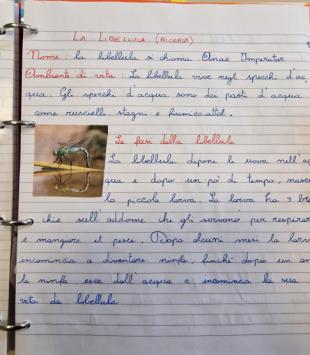 LA LIBELLULA (RICERCA)
Nome: la libellula si chiama Anax Imperator
Ambiente di vita: La libellula vive negli specchi d'ac
qua. Gli specchi d'acqua sono dei posti d'acqua
come ruscelli, stagni e fiumiciattol.
Le fasi della libellula
La libellula depone le uova nell'ac
qua e dopo un po' di tempo, nasce
la piccola larva. La larva ha 3 bran
chie sull'addome che gli servono per respirare
e mangiare il pesce. Dopo alcuni mesi la larva
incomincia a diventare ninfa, finché dopo un an
la ninfa esce dall'acqua e incomincia la sua
vita da libellula